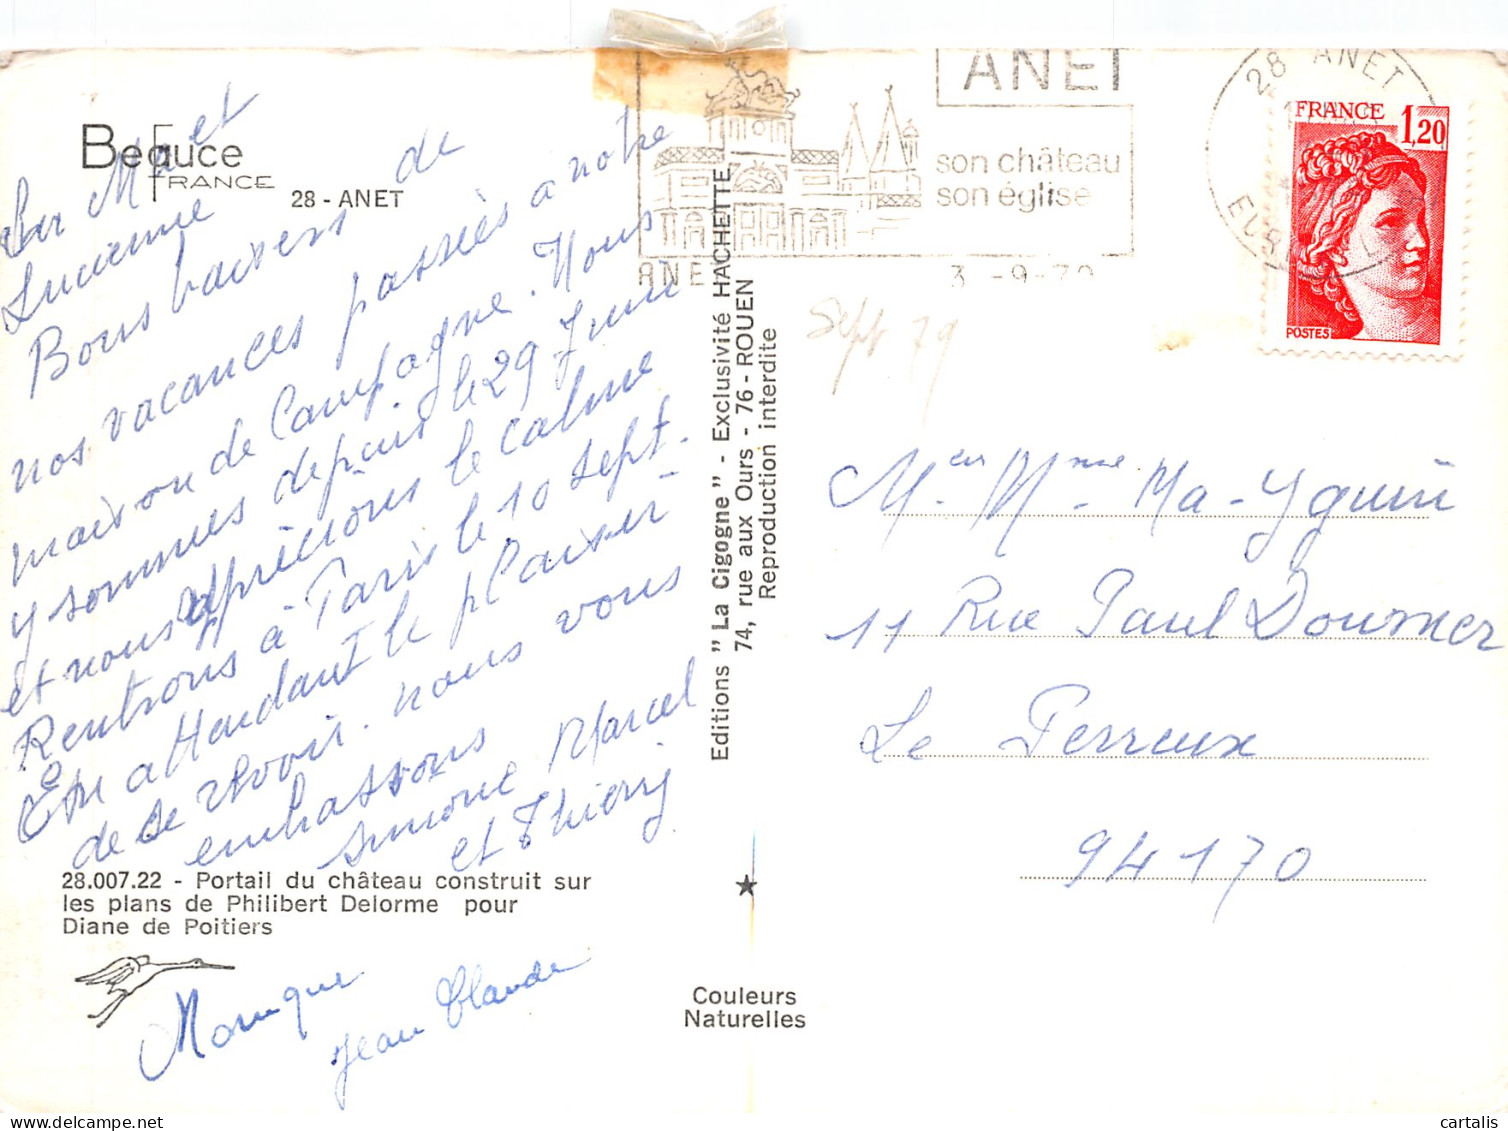 Beauce
FRANCE
28 - ANET
Ma et
Lucienne
Bons baisers de
nos vacances passées à notre
maison de Campagne. Nous
y sommes depuis le 29 Juin
et nous apprécions le calme
Rentrons à Paris le 10 sept.
En attendant le plaisir
de se revoir. nous vous
embrassons
Simone Marcel
et Thierry
28.007.22 - Portail du château construit sur
les plans de Philibert Delorme pour
Diane de Poitiers
Monique
Jean Claude
Editions " La Cigogne " - Exclusivité HACHETTE
74, rue aux Ours - 76 - ROUEN
Reproduction interdite
Couleurs
Naturelles
ANET
son château
son église
ANE
3 -9-79
28 ANET
FRANCE
1,20
POSTES
Sept 79
Mme Ma-Yguin
11 Rue Paul Doumer
Le Perreux
94170
delcampe.net
cartalis